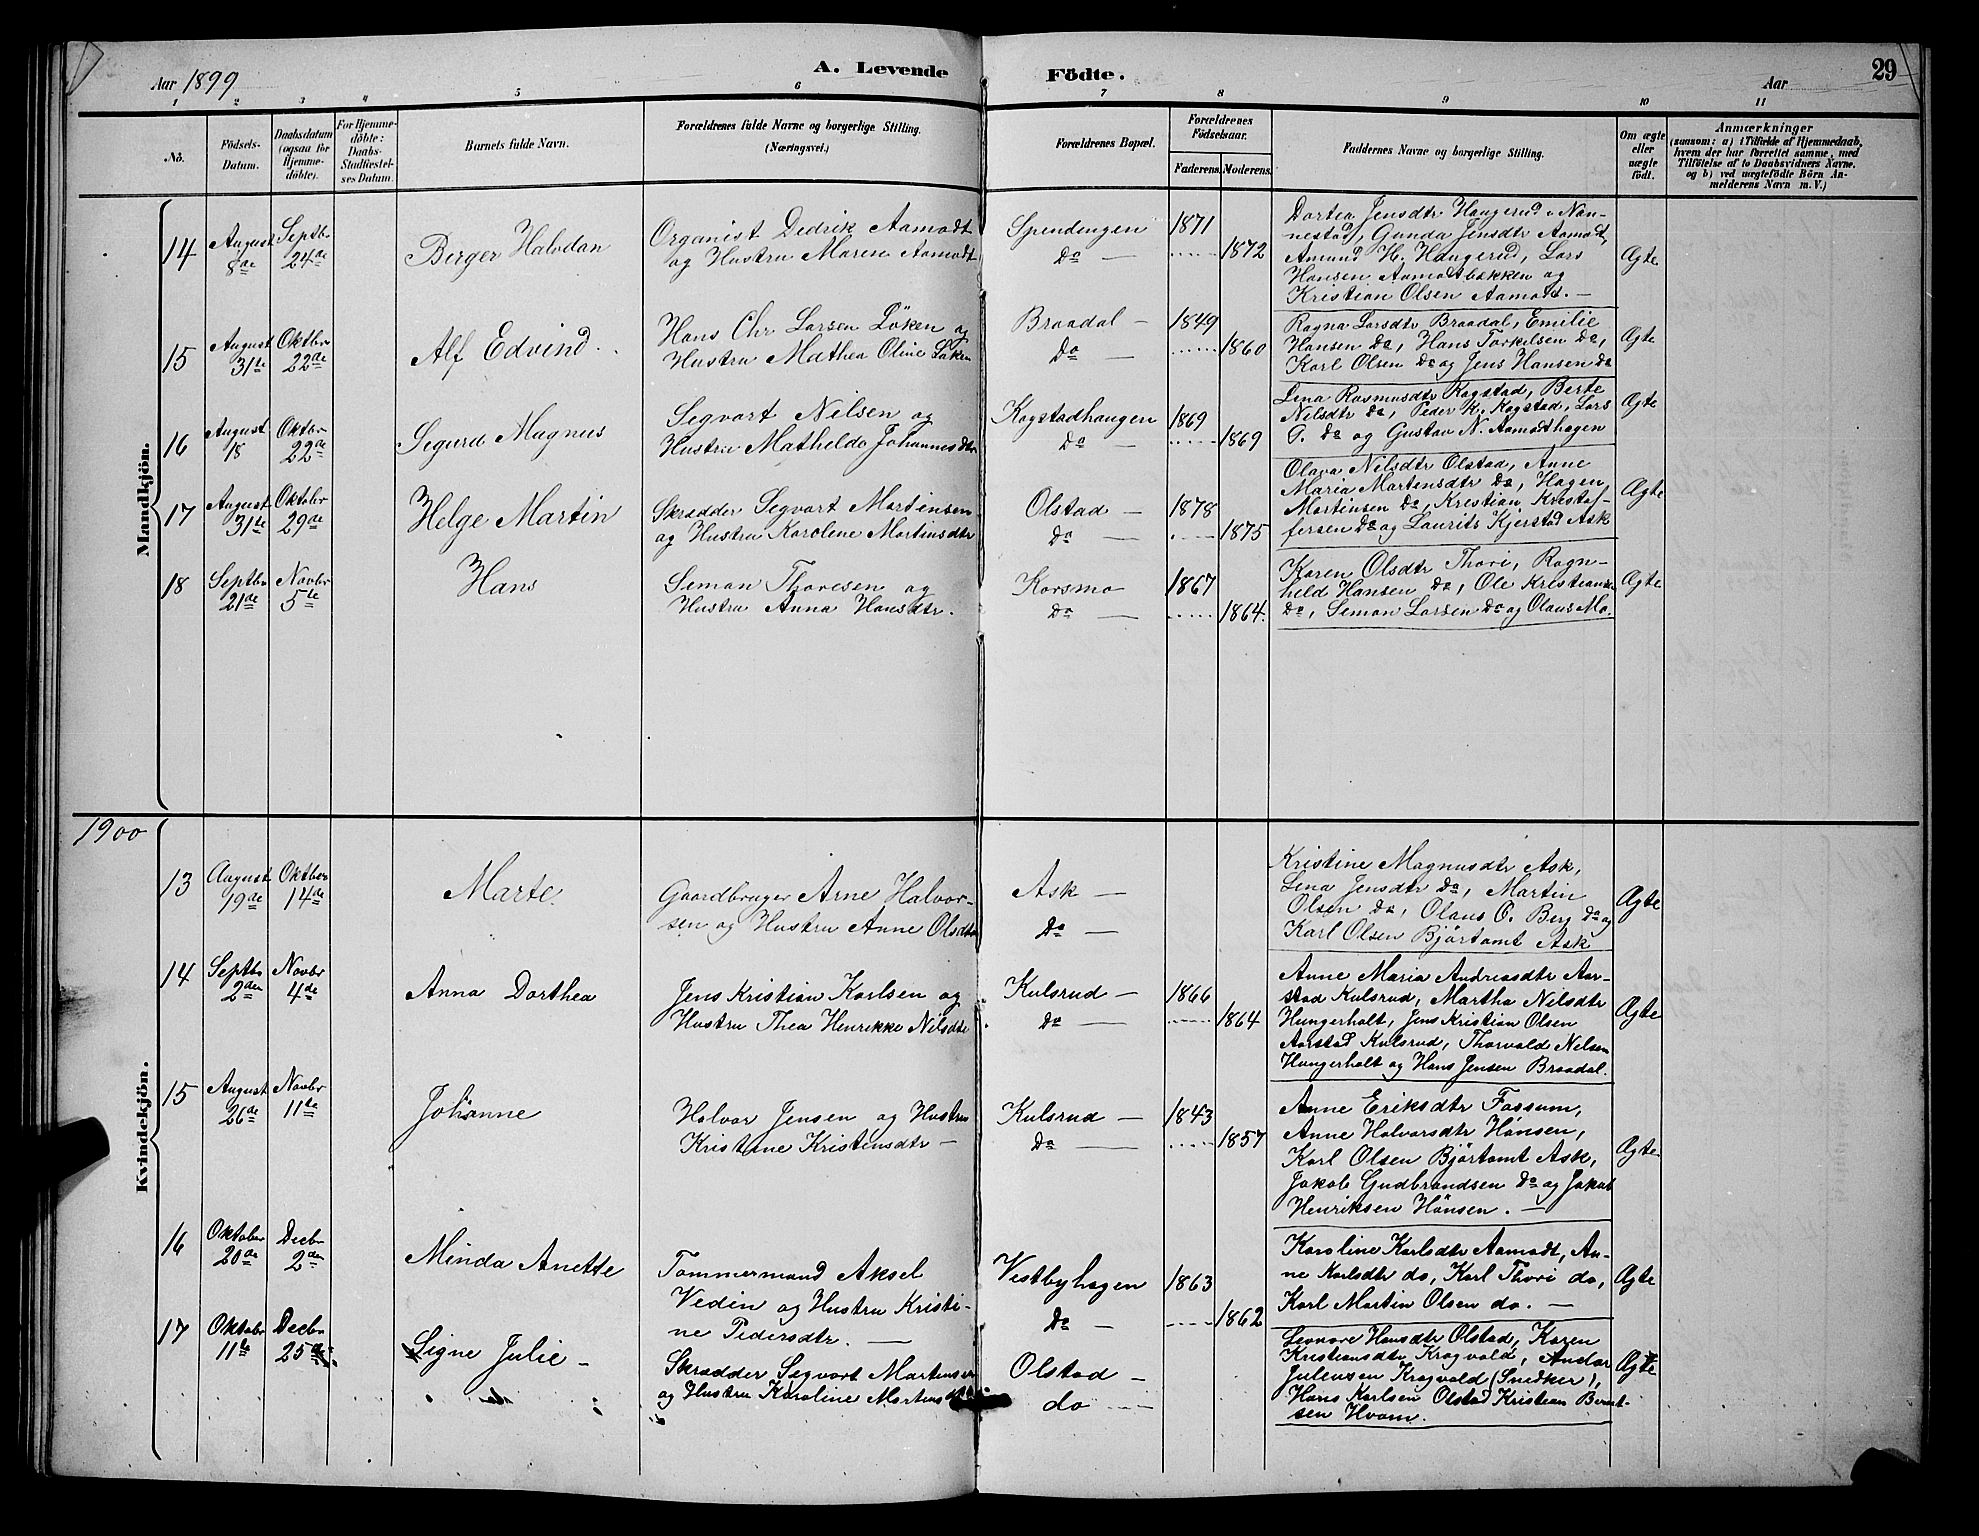 Aar 1899
A. Levende Födte.
Aar
29
1 2 3 4 5 6 7 8 9 10 11
No.
Födsels-
Datum.
Daabsdatum
(ogsaa for
Hjemme-
döbte).
For Hjemme-
döbte:
Daabs-
Stadfæstel-
ses Datum.
Barnets fulde Navn.
Forældrenes fulde Navne og borgerlige Stilling.
(Næringsvei.)
Forældrenes Bopæl.
Forældrenes
Födselsaar.
Faderens.
Moderens.
Faddernes Navne og borgerlige Stilling.
Om ægte
eller
uægte
födt.
Anmærkninger
(saasom: a) i Tilfælde af Hjemmedaab,
hvem der har forrettet samme, med
Tilföielse af to Daabsvidners Navne.
og b) ved uægtefödte Börn An-
melderens Navn m. V.)
Mandkjön.
14
August
8de
Septbr
24de
Berger Halvdan
Organist Dedrik Aamodt
og Hustru Maren Aamodt
Spendingen
Do —
1871
1872
Dortea Jensdtr Haugerud v Nan-
nestad, Gunda Jensdtr Aamodt,
Amund H. Haugerud, Lars
Hansen Aamodtbakken og
Kristian Olsen Aamodt. —
Ægte
15
August
31te
Oktbr
22de
Alf Edvind
Hans Chr Larsen Löken og
Hustru Mathea Oline Løken
Braadal —
Do —
1849
1860
Ragna Larsdtr Braadal, Emilie
Hansen Do, Hans Torkelsen Do,
Karl Olsen Do og Jens Hansen Do
Ægte
16
August
18
Oktbr
22de
Segurd Magnus
Segvart Nilsen og
Hustru Mathelda Johannesdtr
Kogstadhaugen
Do —
1869
1869
Lena Rasmusdtr Kogstad, Berte
Nilsdtr Do, Peder K. Kogstad, Lars
P. Do og Gustav N. Aamodthagen
Ægte
17
August
31te
Oktober
29de
Helge Martin
Skrædder Segvart Martinsen
og Hustru Karolene Martinsdtr
Olstad —
Do —
1878
1875
Olava Nilsdtr Olstad, Anne
Maria Martensdtr Do, Hagen
Martinsen Do, Kristian Kristof-
fersen Do og Laurits Kjerstad Ask
Ægte
18
Septbr
21de
Novbr
5te
Hans
Semon Thoresen og
Hustru Anna Hansdtr.
Korsmo
Do —
1867
1864.
Karen Olsdtr Thori, Ragn-
held Hansen Do, Ole Kristiansen
Do, Semon Larsen Do og Olaus Mo.
Ægte
1900
Kvindekjön.
13
August
19de
Oktber
14de
Marte.
Gaardbruger Arne Halvor-
sen og Hustru Anne Olsdtr
Ask —
Do —
Kristine Magnusdtr Ask,
Lena Jensdtr Do, Martin
Olsen Do, Olaus O. Berg Do og
Karl Olsen Bjørtomt Ask
Ægte
14
Septbr
2den
Novbr
4de
Anna Dorthea
Jens Kristian Karlsen og
Hustru Thea Henrikke Nilsdtr
Kulsrud —
Do —
1866
1864
Anne Maria Andreasdtr Aar-
stad Kulsrud, Martha Nilsdtr
Hungerholt, Jens Kristian Olsen
Aarstad Kulsrud, Thorvald Nelsen
Hungerholt og Hans Jensen Braadal.
Ægte
15
August
26de
Novbr
11te
Johanne
Halvor Jensen og Hustru
Kristine Kristensdtr —
Kulsrud —
Do —
1843
1857
Anne Eriksdtr Fossum,
Anne Halvorsdtr Hønsen,
Karl Olsen Bjørtomt Ask,
Jakob Gudbrandsen Do og Jakob
Henriksen Hønsen. —
Ægte.
16
Oktober
20de
Decbr
2den
Minda Anette
Tømmermand Aksel
Vedin og Hustru Kristi-
ne Pedersdtr. —
Vestbyhagen
Do —
1863
1862
Karoline Karlsdtr Aamodt, An-
ne Karlsdtr do, Karl Thori do,
Karl Martin Olsen do. —
Ægte
17
Oktobr
11te
Decbr
25de
Signe Julie —
Skrædder Segvart Martensen
og Hustru Karoline Martensdtr
Olstad —
do —
Leonore Hansdtr Olstad, Karen
Kristiansdtr Kragvold, Andor
Julensen Kragvold (Snedker),
Hans Karlsen Olstad Kristian Bernt-
sen Hvam.
Ægte